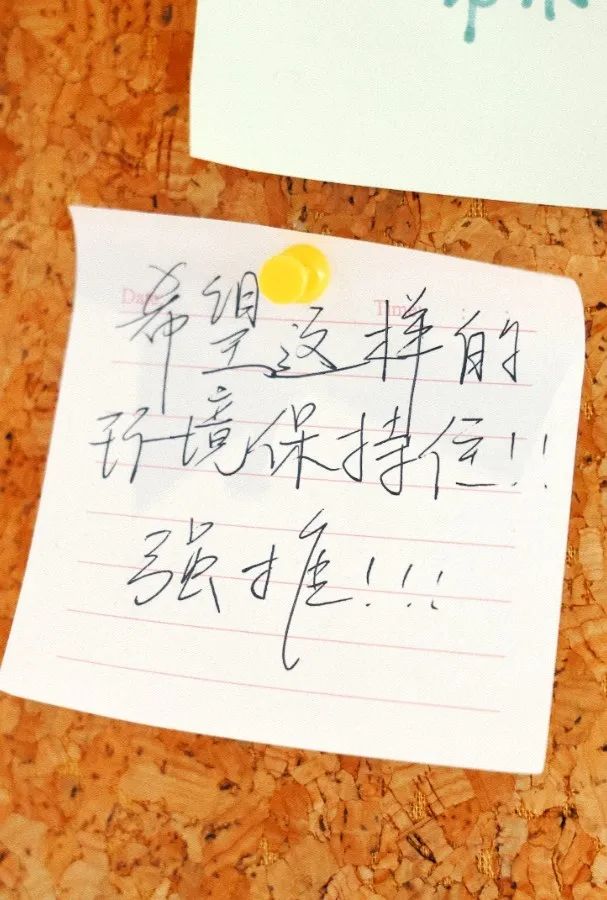 Date
Time
希望这样的
环境保持住!!
强推!!!